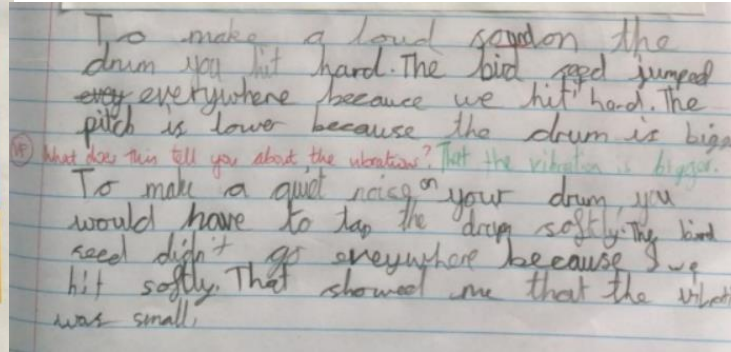 To make a loud sound on the
drum you hit hard. The bird seed jumped
everywhere because we hit hard. The
pitch is lower because the drum is bigg
VF What does this tell you about the vibration? That the vibration is bigger.
To make a quiet noise on your drum, you
would have to tap the drum softly. The bird
seed didn't go everywhere because we
hit softly. That showed me that the vibrati
was small.